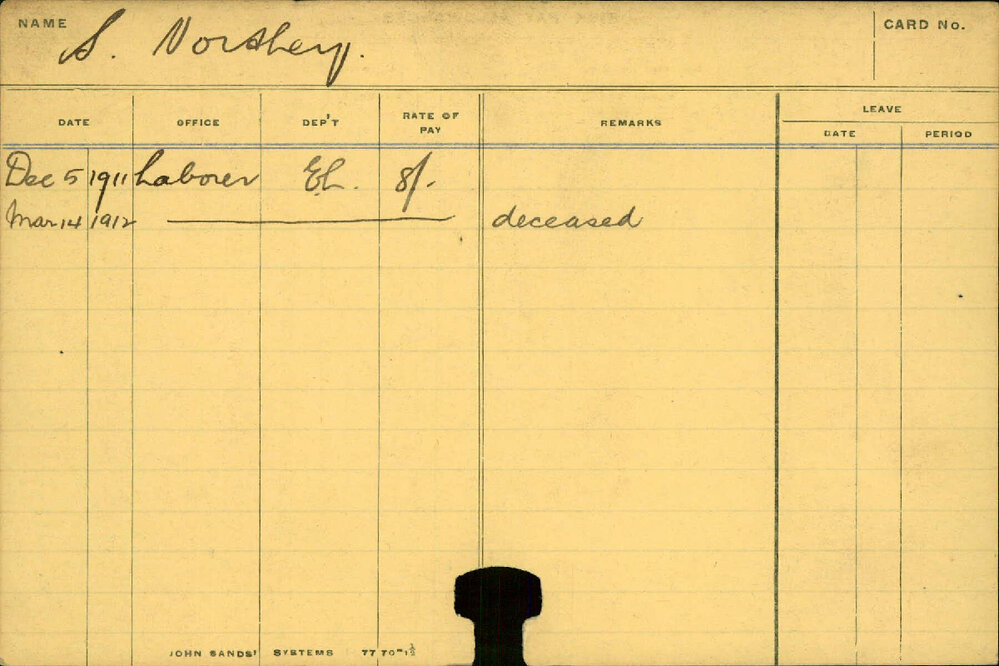 NAME S. Northey. CARD No.
LEAVE
DATE OFFICE DEP'T RATE OF PAY REMARKS DATE PERIOD
Dec 5 1911 Laborer E.L. 8/-
Mar 14 1912 deceased
JOHN SANDS' SYSTEMS 77 70